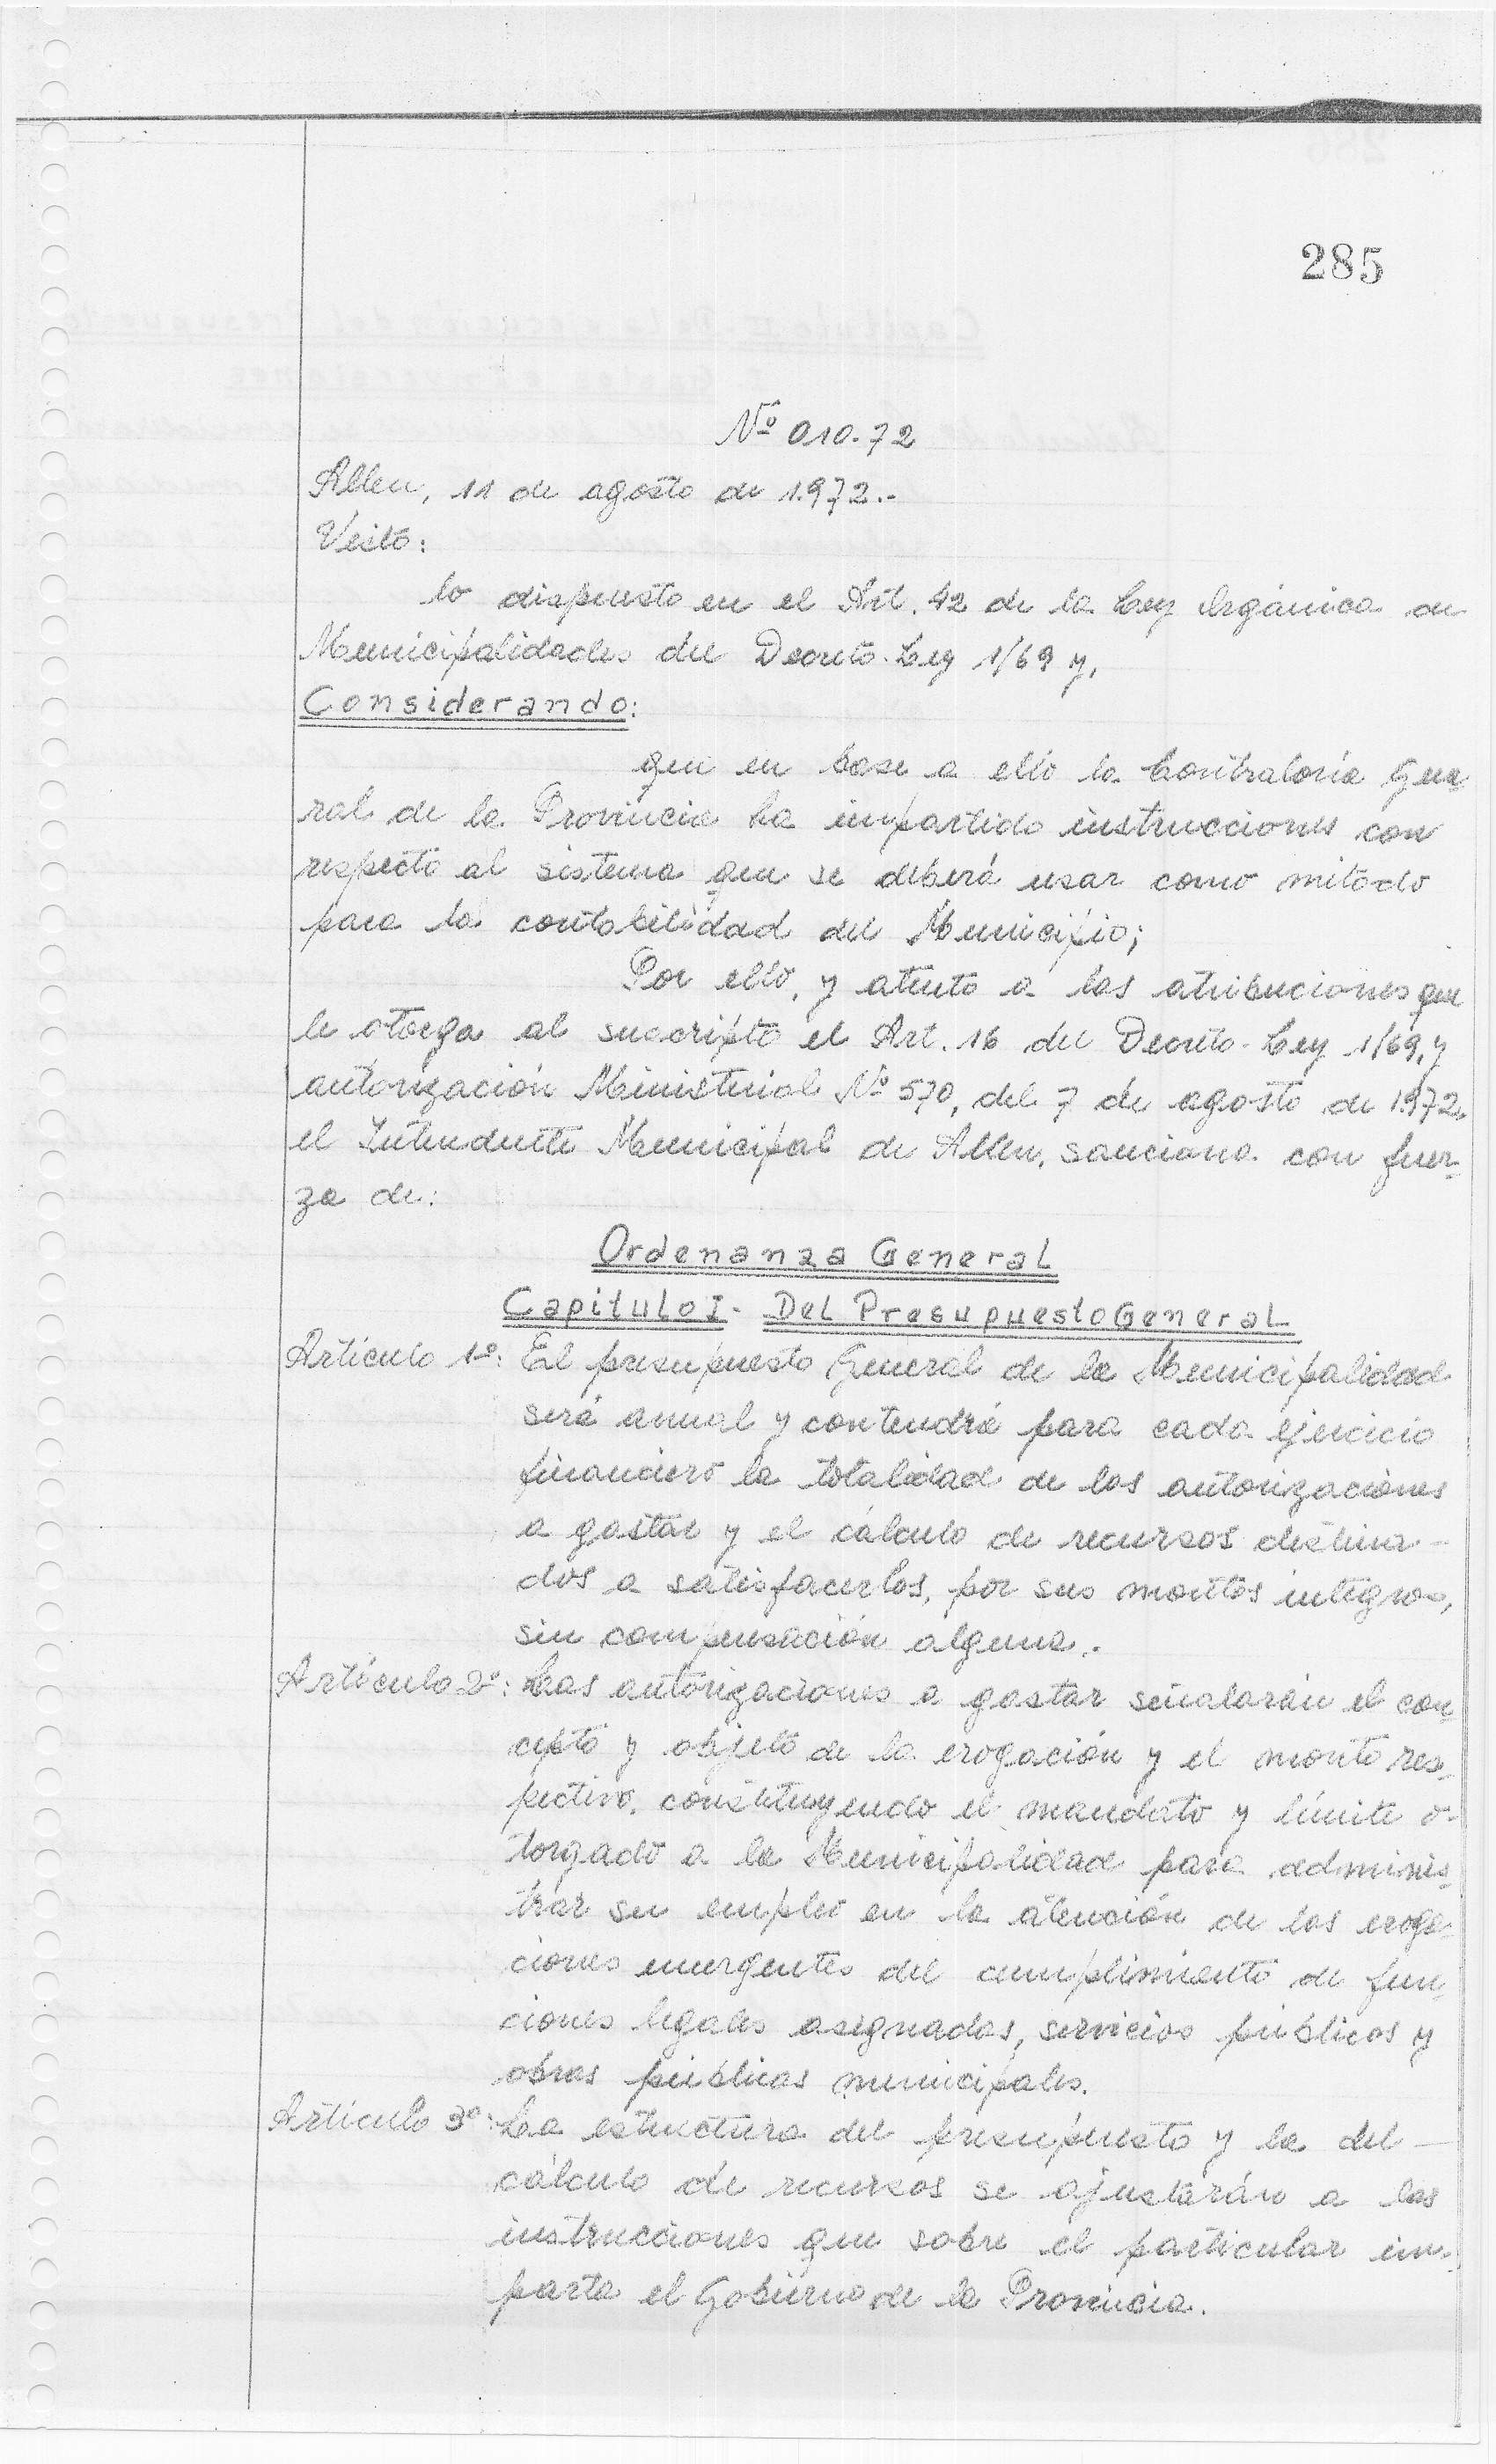 285
Nº 010-72
Allen, 11 de agosto de 1.972.-
Visto:
lo dispuesto en el Art. 42 de la Ley Orgánica de
Municipalidades del Decreto-Ley 1/69 y,
Considerando:
que en base a ello la Contraloría Gene-
ral de la Provincia ha impartido instrucciones con
respecto al sistema que se deberá usar como método
para la contabilidad del Municipio;
Por ello, y atento a las atribuciones que
le otorga al suscripto el Art. 16 del Decreto-Ley 1/69, y
autorización Ministerial Nº 570, del 7 de agosto de 1.972,
el Intendente Municipal de Allen, sanciona con fuer-
za de:
Ordenanza General
Capitulo I - Del Presupuesto General
Artículo 1º: El presupuesto General de la Municipalidad
será anual y contendrá para cada ejercicio
financiero la totalidad de las autorizaciones
a gastar y el cálculo de recursos destina-
dos a satisfacerlos, por sus montos integros,
sin compensación alguna.
Artículo 2º: Las autorizaciones a gastar señalarán el con-
cepto y objeto de la erogación y el monto res-
pectivo, constituyendo el mandato y límite o-
torgado a la Municipalidad para adminis-
trar su empleo en la atención de las eroga-
ciones emergentes del cumplimiento de fun-
ciones legales asignadas, servicios públicos y
obras públicas municipales.
Artículo 3º: La estructura del presupuesto y la del
cálculo de recursos se ajustarán a las
instrucciones que sobre el particular im-
parta el Gobierno de la Provincia.